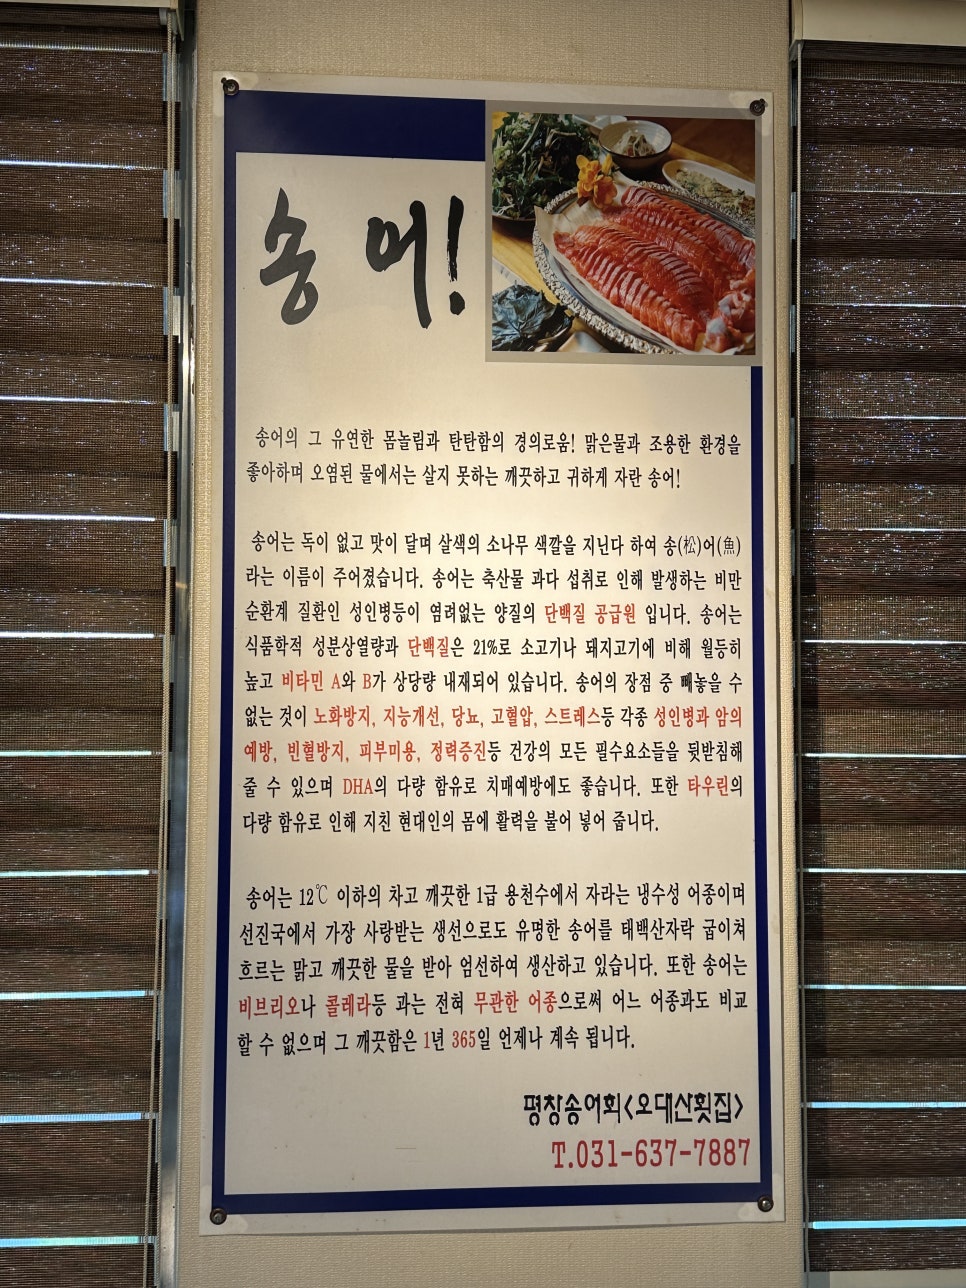 송어!
송어의 그 유연한 몸놀림과 탄탄함의 경의로움! 맑은물과 조용한 환경을
좋아하며 오염된 물에서는 살지 못하는 깨끗하고 귀하게 자란 송어!
송어는 독이 없고 맛이 달며 살색의 소나무 색깔을 지닌다 하여 송(松)어(魚)
라는 이름이 주어졌습니다. 송어는 축산물 과다 섭취로 인해 발생하는 비만
순환계 질환인 성인병등이 염려없는 양질의 단백질 공급원 입니다. 송어는
식품학적 성분상열량과 단백질은 21%로 소고기나 돼지고기에 비해 월등히
높고 비타민 A와 B가 상당량 내재되어 있습니다. 송어의 장점 중 빼놓을 수
없는 것이 노화방지, 지능개선, 당뇨, 고혈압, 스트레스등 각종 성인병과 암의
예방, 빈혈방지, 피부미용, 정력증진등 건강의 모든 필수요소들을 뒷받침해
줄 수 있으며 DHA의 다량 함유로 치매예방에도 좋습니다. 또한 타우린의
다량 함유로 인해 지친 현대인의 몸에 활력을 불어 넣어 줍니다.
송어는 12℃ 이하의 차고 깨끗한 1급 용천수에서 자라는 냉수성 어종이며
선진국에서 가장 사랑받는 생선으로도 유명한 송어를 태백산자락 굽이쳐
흐르는 맑고 깨끗한 물을 받아 엄선하여 생산하고 있습니다. 또한 송어는
비브리오나 콜레라등 과는 전혀 무관한 어종으로써 어느 어종과도 비교
할 수 없으며 그 깨끗함은 1년 365일 언제나 계속 됩니다.
평창송어회<오대산횟집>
T.031-637-7887